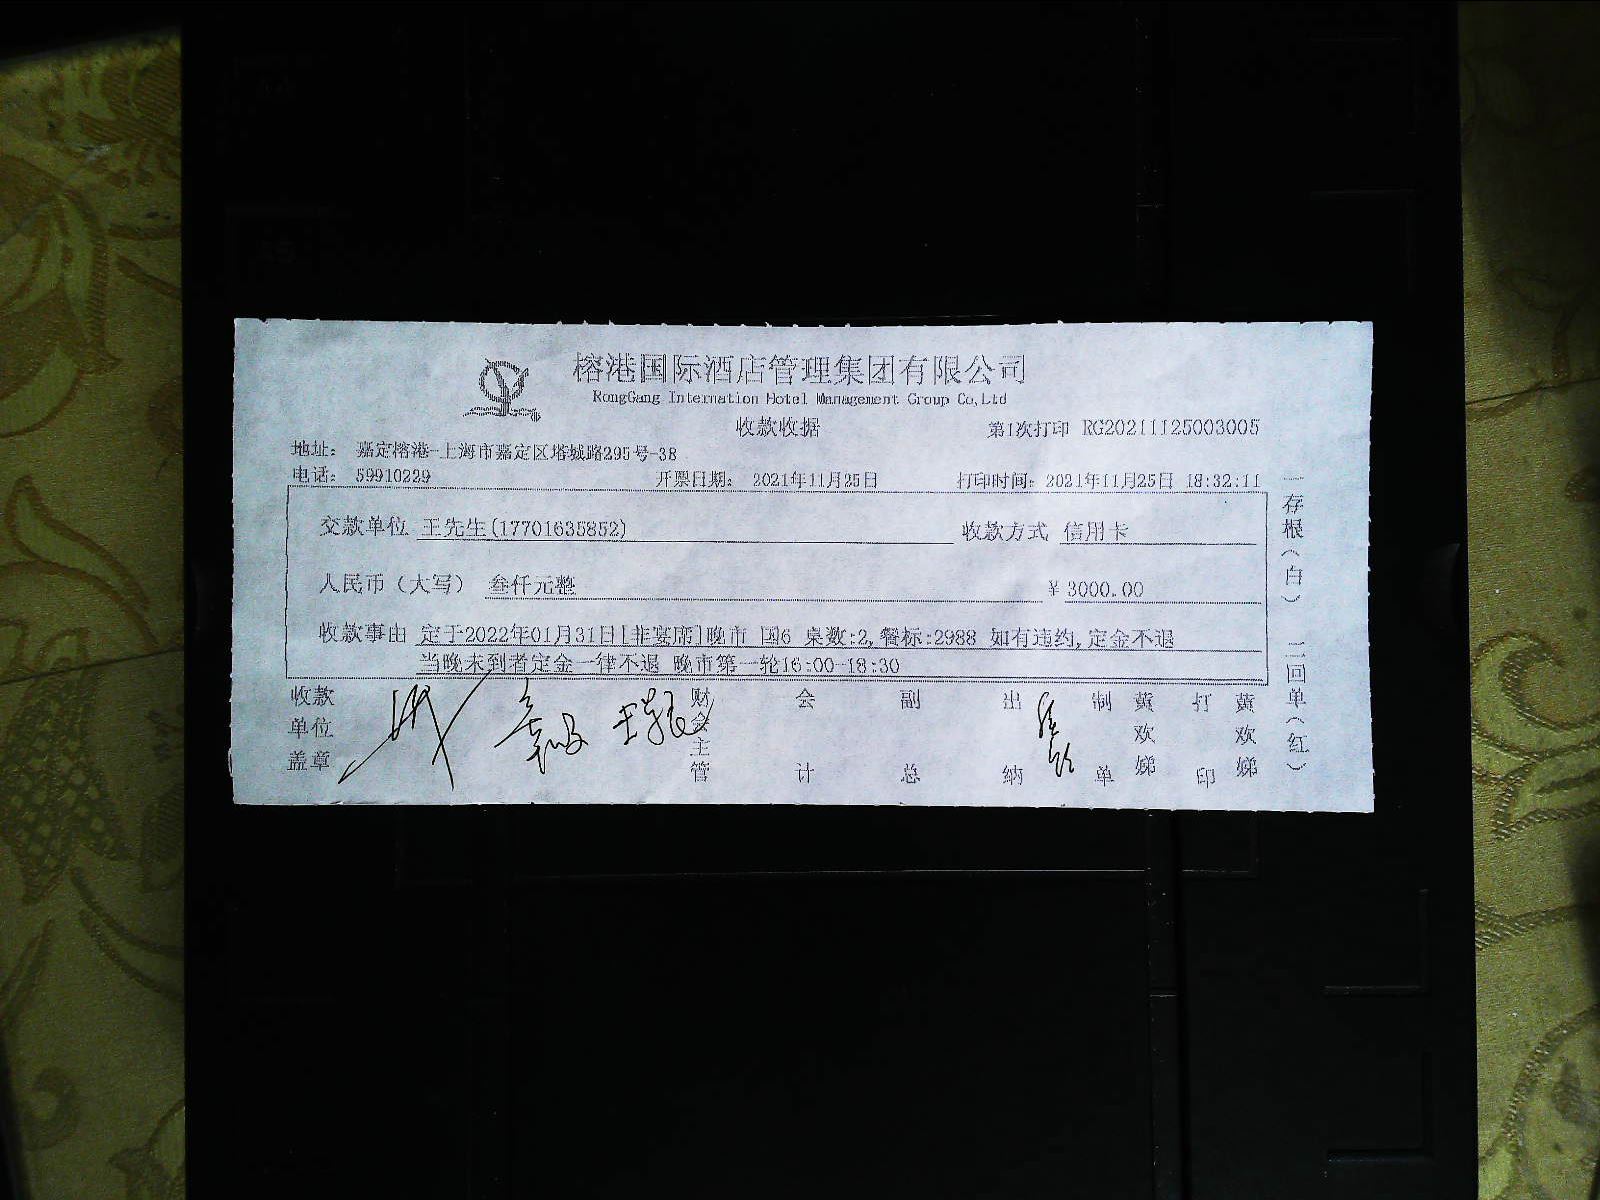 榕港国际酒店管理集团有限公司
RongGang Internation Hotel Management Group Co,Ltd
收款收据
第1次打印 RG20211125003005
地址： 嘉定榕港-上海市嘉定区塔城路295号-3B
电话： 59910229 开票日期： 2021年11月25日 打印时间：2021年11月25日 18:32:11
交款单位 王先生(17701635852) 收款方式 信用卡
人民币（大写） 叁仟元整 ¥ 3000.00
收款事由 定于2022年01月31日[非宴席]晚市 国6 桌数:2,餐标:2988 如有违约,定金不退
当晚未到者定金一律不退 晚市第一轮16:00-18:30
收款单位盖章
财会主管
会计
副总
出纳
制单 黄欢娣
打印 黄欢娣
一存根（白） 二回单（红）